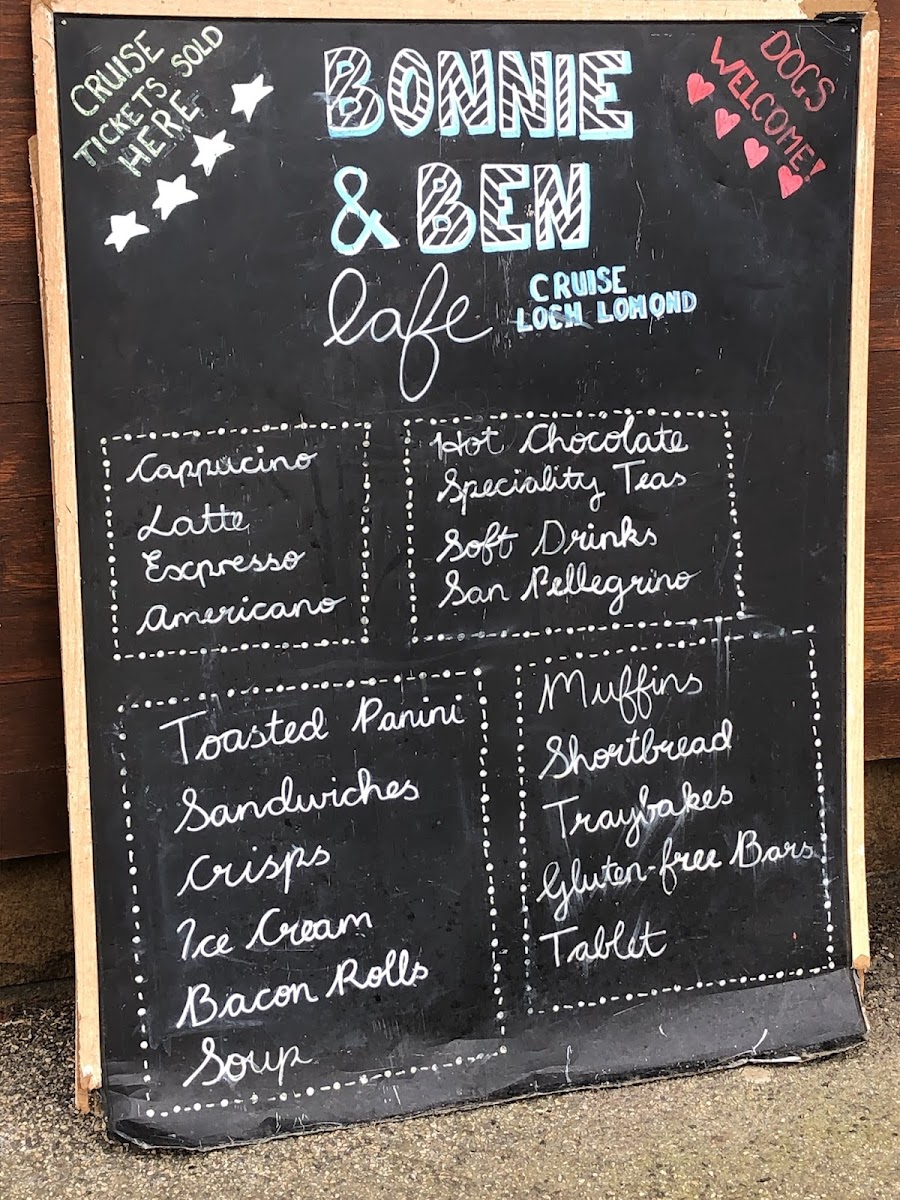 CRUISE
TICKETS SOLD
HERE
BONNIE
& BEN
Cafe
CRUISE
LOCH LOMOND
DOGS
WELCOME!
Cappucino
Latte
Escpresso
Americano
Hot Chocolate
Speciality Teas
Soft Drinks
San Pellegrino
Toasted Panini
Sandwiches
Crisps
Ice Cream
Bacon Rolls
Soup
Muffins
Shortbread
Traybakes
Gluten-free Bars
Tablet